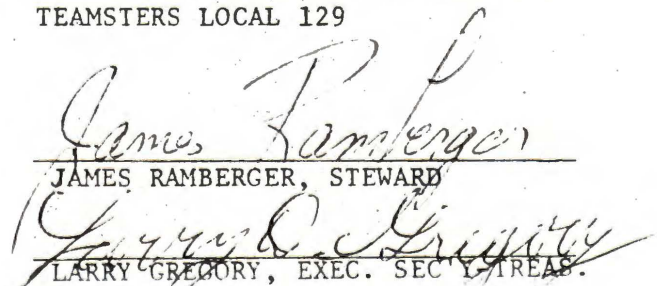 TEAMSTERS LOCAL 129
James Ramberger
JAMES RAMBERGER, STEWARD
Larry D. Gregory
LARRY GREGORY, EXEC. SEC'Y-TREAS.